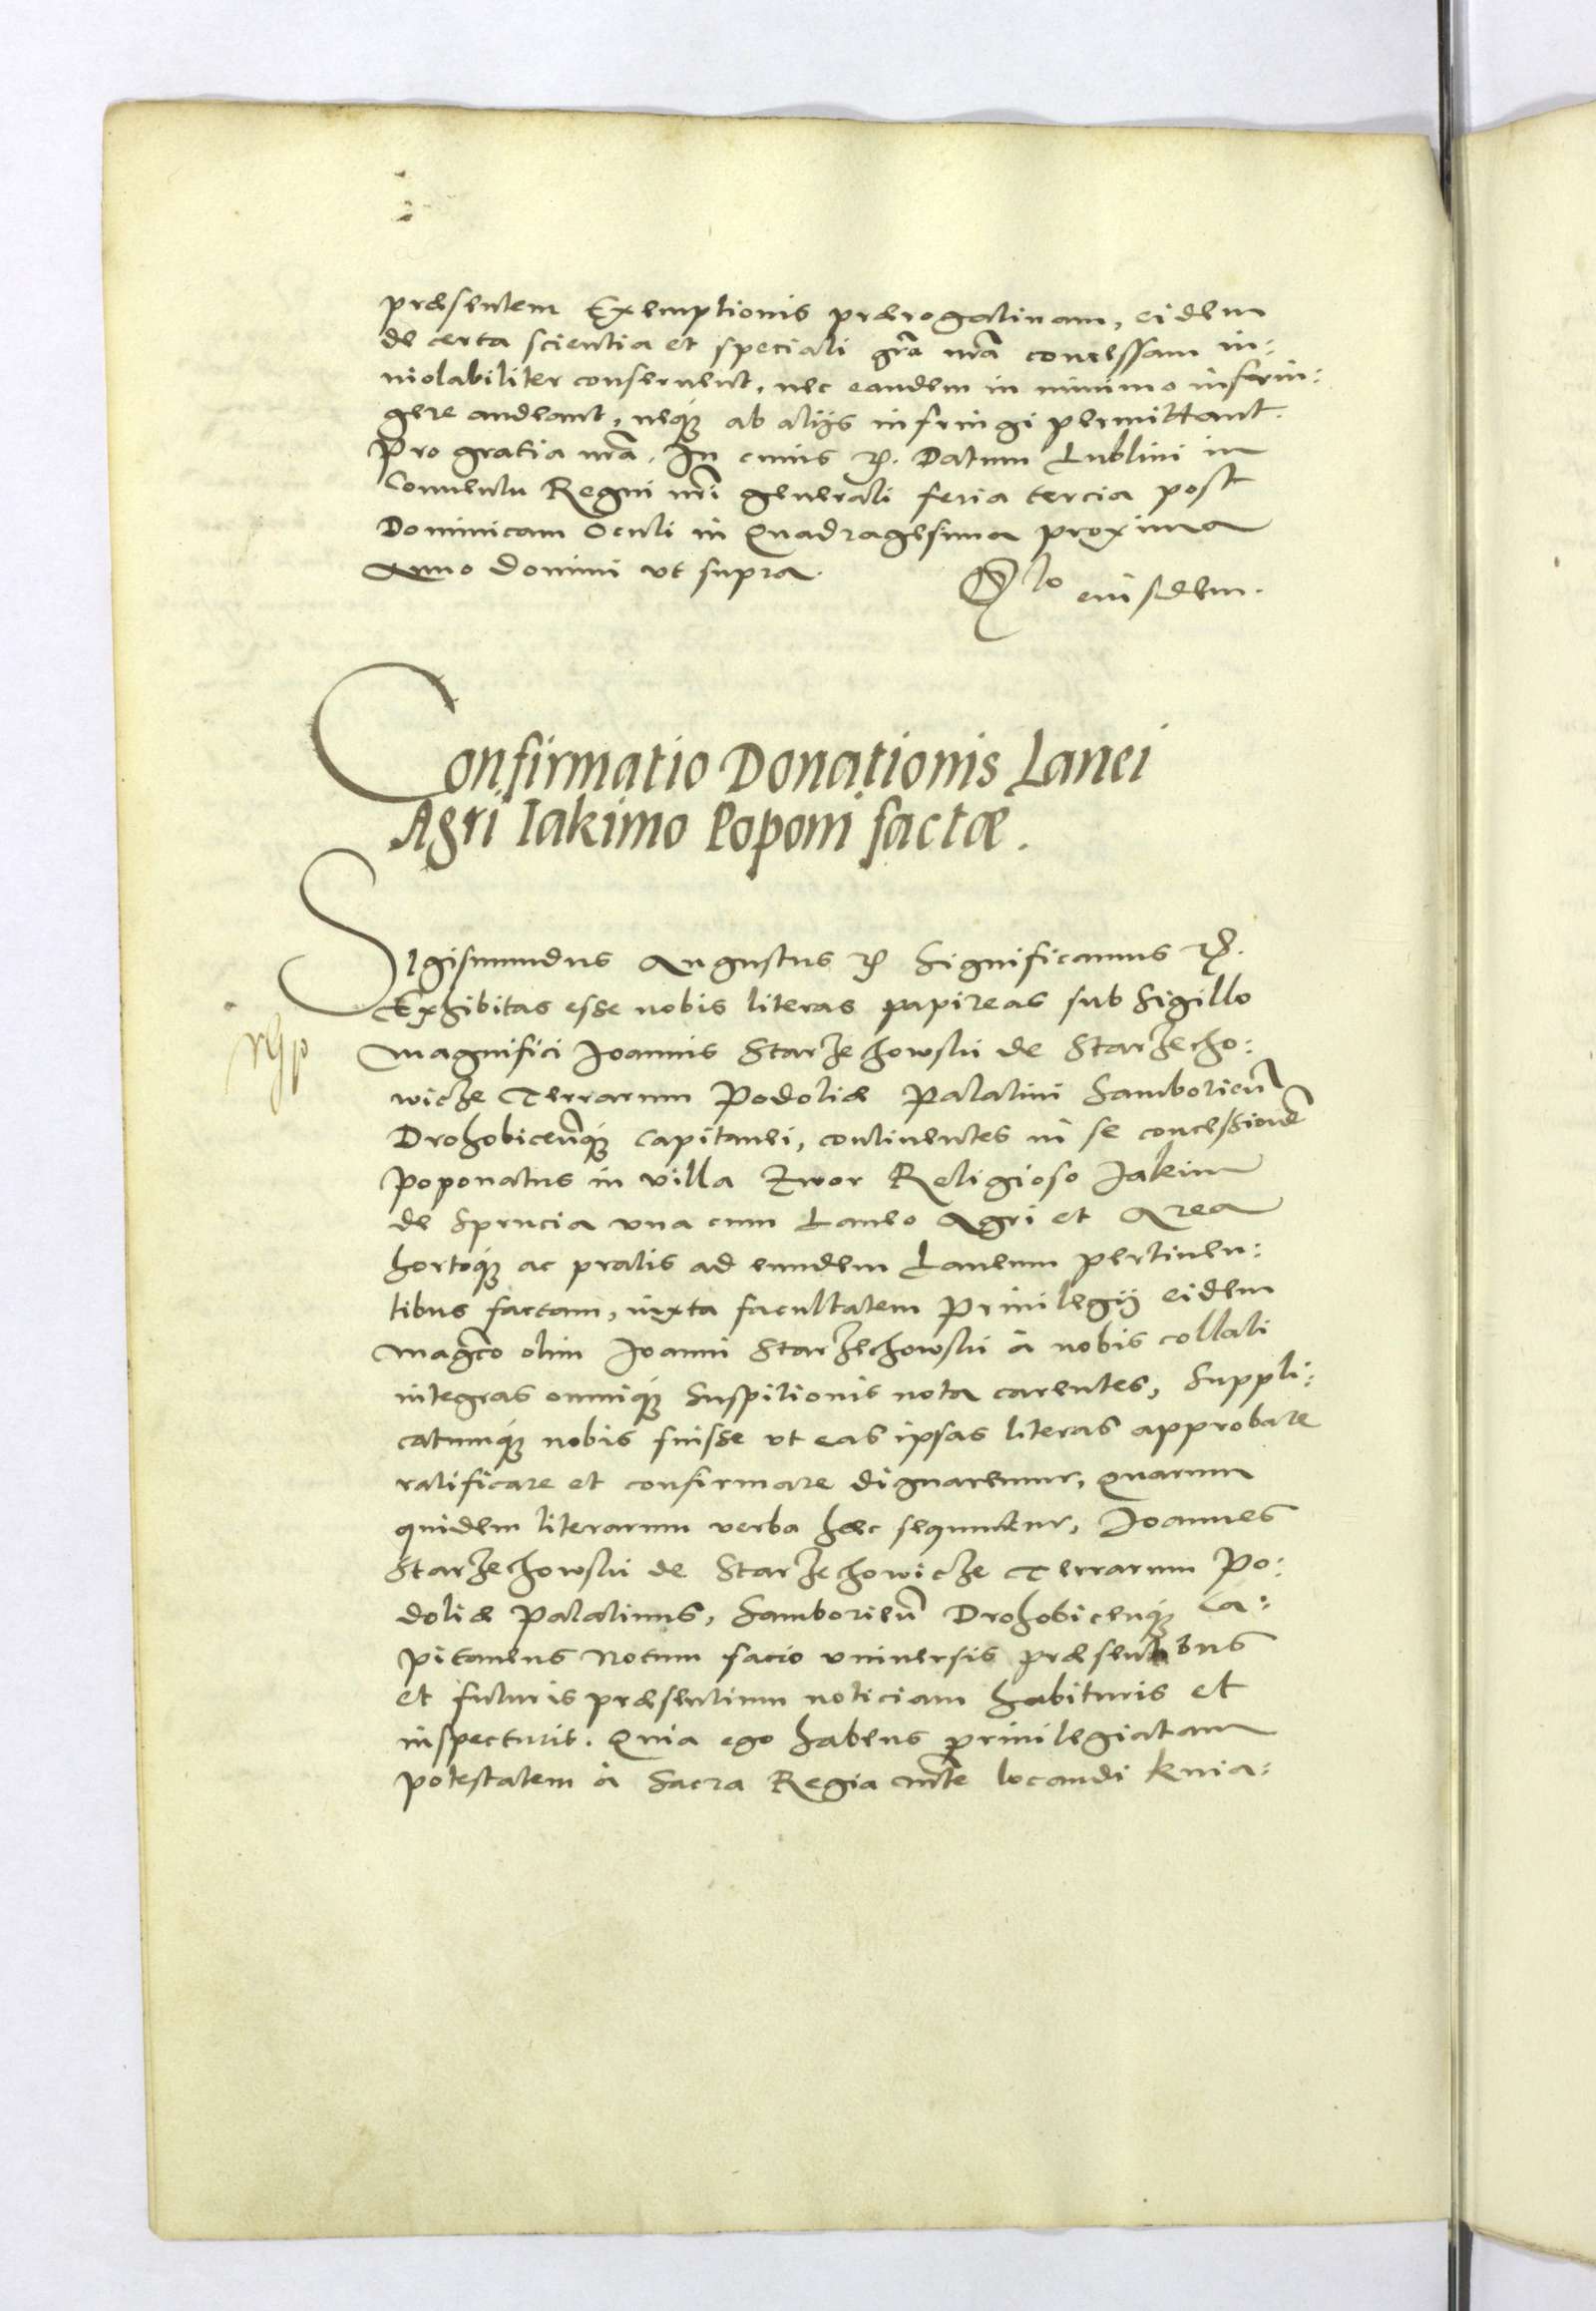 præsentem Exemptionis prærogatiuam, eidem
de certa scientia et speciali gr̃a nr̃a concessam in:
uiolabiliter conseruent, nec eandem in minimo infrin:
gere audeant, neq́; ab alijs infringi permittant.
Pro gratia nr̃a. In cuius rei. Datum Lublini in
Conuentu Regni nr̃i generali feria tercia post
Dominicam Oculi in Quadragesima proxima
Anno Domini vt supra.
eiusdem.
Confirmatio Donationis Lanei
Agri Iakimo Poponi factæ.
Sigismundus Augustus Significamus
Exhibitas esse nobis literas papireas sub Sigillo
Magnifici Joannis Starzechowski de Starzecho:
wicze Terrarum Podoliæ Palatini Samborieñ
Drohobiceñq́; Capitanei, continentes in se concessionẽ
Poponatus in villa Zwor Religioso Jakim
de Sprucia vna cum Laneo Agri et Area
hortoq́; ac pratis ad eundem Laneum pertinen:
tibus factam, iuxta facultatem Priuilegij eidem
Magco olim Joanni Starzechowski à nobis collati
integras omniq́; Suspitionis nota carentes, Suppli:
catumq́; nobis fuisse vt eas ipsas literas approbare
ratificare et confirmare dignaremur, Quarum
quidem literarum verba hæc sequuntur, Joannes
Starzechowski de Starzechowicze Terrarum Po:
doliæ Palatinus, Samborieñ Drohobicenq́; Ca:
pitaneus Notum facio vniuersis præsentibus
et futuris præsentium noticiam habituris et
inspecturis. Quia ego habens priuilegiatam
potestatem à Sacra Regia Mte locandi knia: